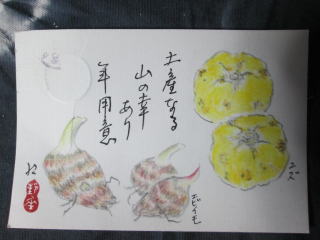 土産なる
山の幸
あり
年用意
ユズ
エビイモ